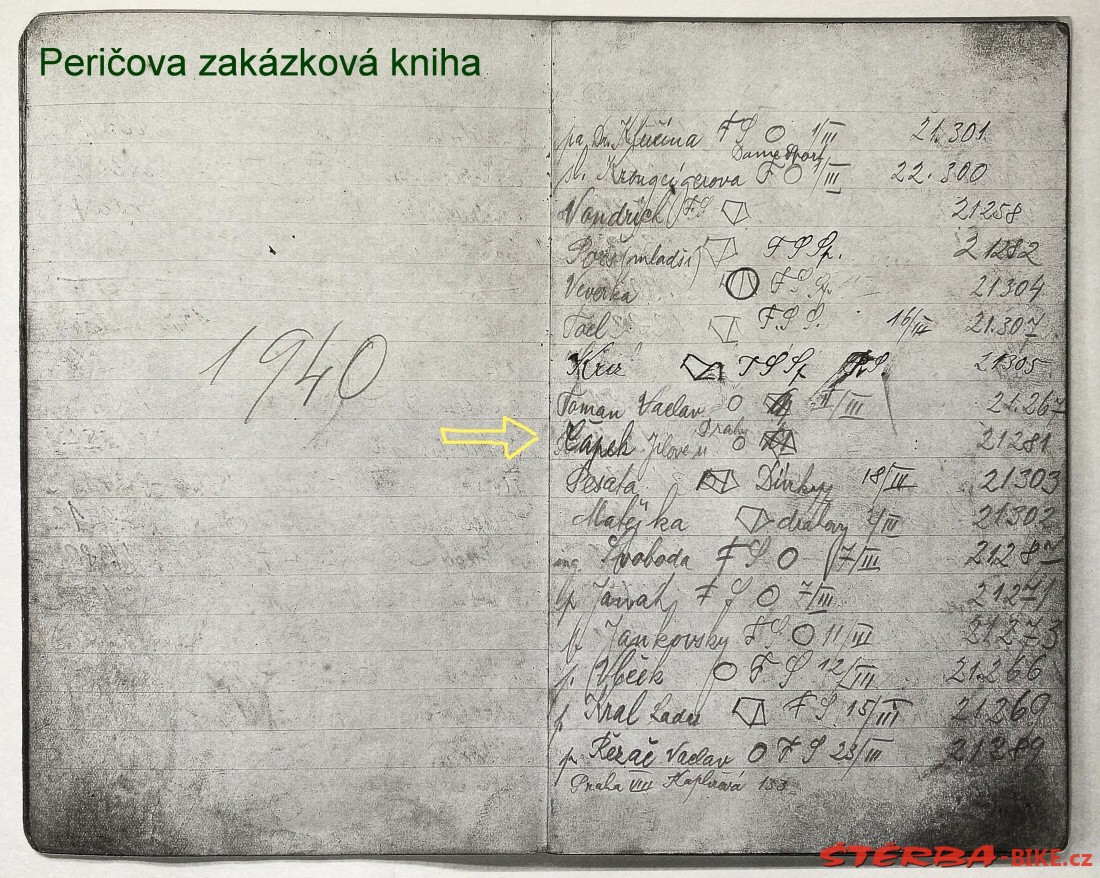 Peričova zakázková kniha
1940
pa Dr. Klučina FS O 1/III 21.301
Dame Sport
sl. F O 1/III 22.300
Vondrich FS 21258
(mladší) F S Sp. 21282
Veverka F S 21304
F S S. 16/III 21.307
Kříž F S Sp 21305
Toman Vaclav O II/III 21.267
Drahy
Čapek Jílove u O 21281
Pesata Dívky 18/IV 21303
Matějka dralovy III 21302
ing. Svoboda F S O 7/III 21287
F S O 7/III 21271
p. Jankovsky F S O 11/III 21.273
p. Vlček O F S 12/III 21.266
p. Kral Lada F S 15/III 21269
p. Řezač Vaclav O F S 23/III 21289
Praha VIII Kaplířová 133
STERBA-BIKE.cz